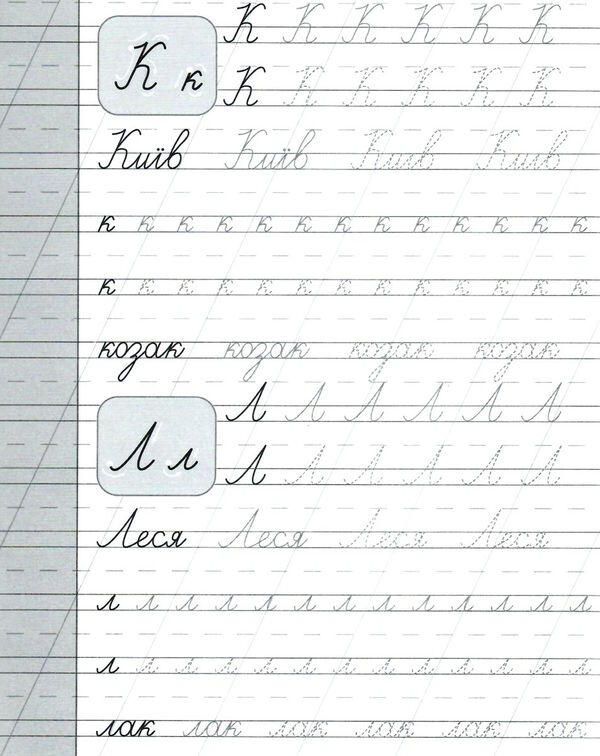 К к
К К К К К К
К К К К К К
Київ Київ Київ Київ
к к к к к к к к к к к к к
к к к к к к к к к к к к к
козак козак козак козак
Л л
Л Л Л Л Л Л
Л Л Л Л Л Л
Леся Леся Леся Леся
л л л л л л л л л л л л л
л л л л л л л л л л л л л
лак лак лак лак лак лак